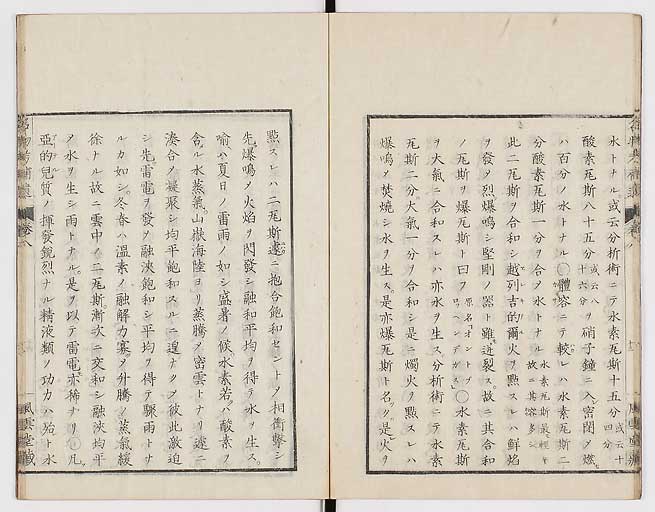 水トナル或云分析術ニテ水素瓦斯十五分或云十四分
酸素瓦斯八十五分或云八十六分ヲ硝子鐘ニ入密閉ノ燃セ
ハ百分ノ水トナル○體容ニテ較レハ水素瓦斯二
分酸素瓦斯一分ヲ合ノ水トナル水素瓦斯最輕キ故ニ其容多シ
此二瓦斯ヲ合和シ越列吉的爾火ヲ點スレハ鮮焰
ヲ發ノ烈爆鳴シ堅剛ノ器ト雖迸裂ス。故ニ其合和
ノ瓦斯ヲ爆瓦斯ト曰フ原名「オントプロヘンデガス」○水素瓦斯
ヲ大氣ニ合和スレハ亦水ヲ生ス分析術ニテ水素
瓦斯二分大氣一分ヲ合和シ是ニ燭火ヲ點スレハ
爆鳴ノ焚燒シ水ヲ生ス。是亦爆瓦斯ト名ク是火ヲ
點スレハ二瓦斯遽ニ抱合飽和セントノ相衝擊シ
先爆鳴ノ火焰ヲ閃發シ融和平均ヲ得テ水ヲ生ス。
喻ハ夏日ノ雷雨ノ如シ盛暑ノ候水素若ハ酸素ヲ
含ル水蒸氣山嶽海陸ヨリ蒸騰ノ密雲トナリ遽ニ
湊合ノ凝聚シ均平飽和スルニ遑ナクノ彼此激迫
シ先雷電ヲ發ノ融浹飽和シ平均ヲ得テ驟雨トナ
ルカ如シ。冬春ハ溫素ノ融解力寡ヲ外騰ノ蒸氣緩
徐ナル故ニ雲中ノ二瓦斯漸次ニ交和シ融浹均平
ノ水ヲ生シ雨トナル。是ヲ以テ雷電亦稀ナリ○凡
亞的兒質ノ揮發銳烈ナル精液類ノ功力ハ殆ト水
風雲堂藏
卷八
風雲堂藏